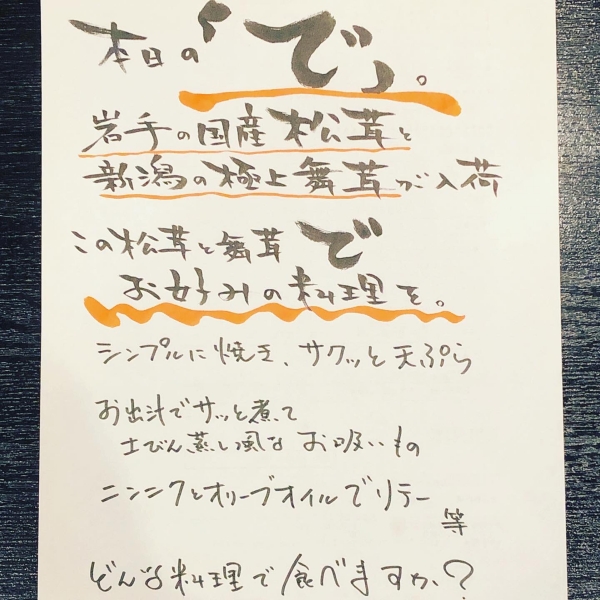 本日の「で」。
岩手の国産松茸と
新潟の極上舞茸が入荷
この松茸と舞茸で
お好みの料理を。
シンプルに焼き、サクッと天ぷら
お出汁でサッと煮て
土びん蒸し風な お吸いもの
ニンニクとオリーブオイルでソテー
等
どんな料理で食べますか?